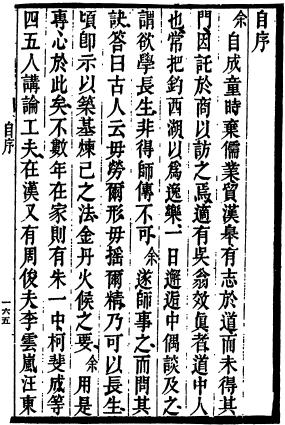 自序
余自成童時棄儒業賈漢皋有志於道而未得其
門因託於商以訪之焉適有吳翁效真者道中人
也常把釣西湖以為逸樂一日邂逅中偶談及之
謂欲學長生非得師傳不可余遂師事之而問其
訣答曰古人云毋勞爾形毋搖爾精乃可以長生
頃卽示以築基煉己之法金丹火候之要余用是
專心於此矣不數年在家則有朱一中柯斐成等
四五人講論工夫在漢又有周俊夫李雲嵐汪東
自序
一六五